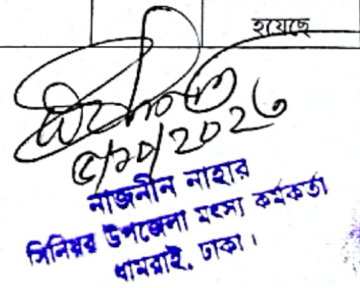 হয়েছে
নাজনীন নাহার
সিনিয়র উপজেলা মৎস্য কর্মকর্তা
ধামরাই, ঢাকা।